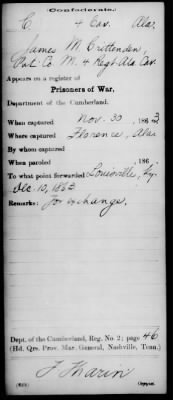 Confederate.
C. 4 Cav. Ala.
James M. Crittenden,
Pvt. Co. M. 4 Regt Ala Cav.
Appears on a register of
Prisoners of War,
Department of the Cumberland.
When captured Nov. 30, 1863
Where captured Florence, Ala
By whom captured
When paroled , 186
To what point forwarded Louisville, Ky.
Dec. 10, 1863
Remarks: For exchange.
Dept. of the Cumberland, Reg. No. 2; page 46
(Hd. Qrs. Prov. Mar. General, Nashville, Tenn.)
Copyist.